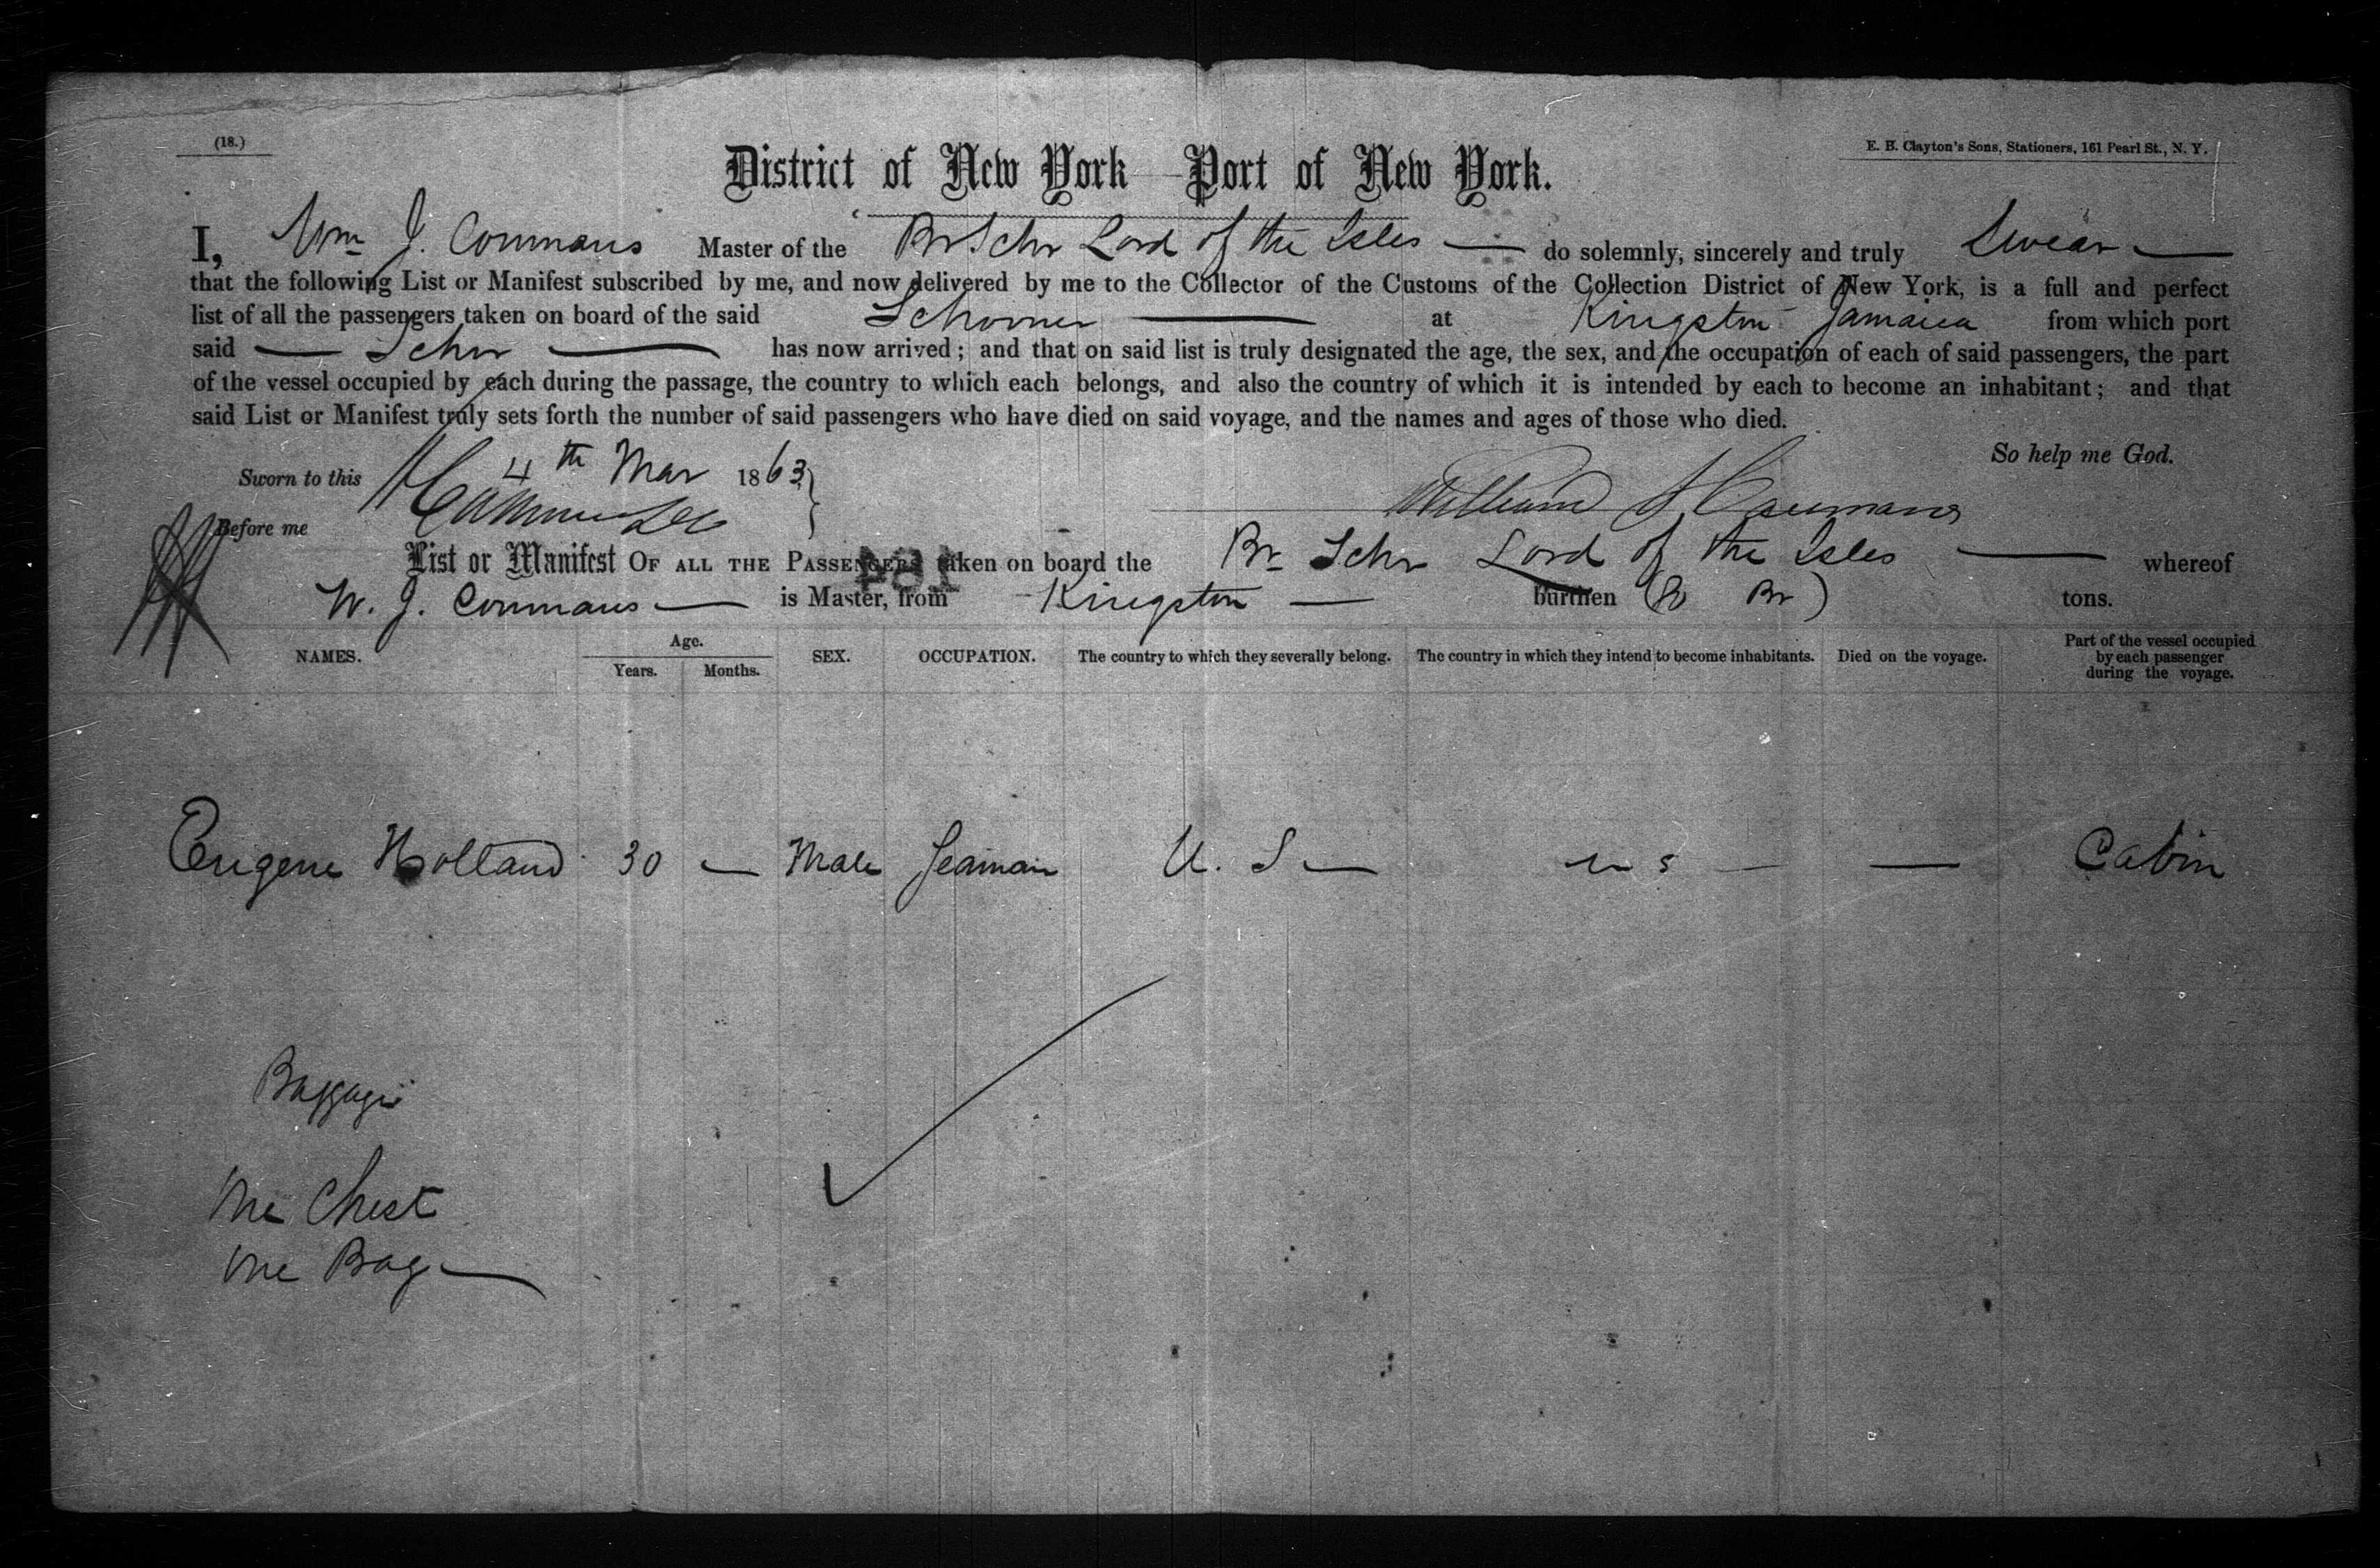 (18.)
E. B. Clayton's Sons, Stationers, 161 Pearl St., N. Y.
District of New York Port of New York.
I, Wm J. Coumans Master of the Br Schr Lord of the Isles — do solemnly, sincerely and truly Swear —
that the following List or Manifest subscribed by me, and now delivered by me to the Collector of the Customs of the Collection District of New York, is a full and perfect
list of all the passengers taken on board of the said Schooner — at Kingston Jamaica from which port
said — Schr — has now arrived; and that on said list is truly designated the age, the sex, and the occupation of each of said passengers, the part
of the vessel occupied by each during the passage, the country to which each belongs, and also the country of which it is intended by each to become an inhabitant; and that
said List or Manifest truly sets forth the number of said passengers who have died on said voyage, and the names and ages of those who died.
So help me God.
Sworn to this 4th Mar 1863
William J Coumans
Before me
List or Manifest OF ALL THE PASSENGERS taken on board the Br Schr Lord of the Isles — whereof
W. J. Coumans — is Master, from Kingston — burthen (80 Br) tons.
184
NAMES. Age. Years. Months. SEX. OCCUPATION. The country to which they severally belong. The country in which they intend to become inhabitants. Died on the voyage. Part of the vessel occupied by each passenger during the voyage.
Eugene Holland 30 — Male Seaman U. S — U S — — Cabin
Baggage
One Chest
One Bag —